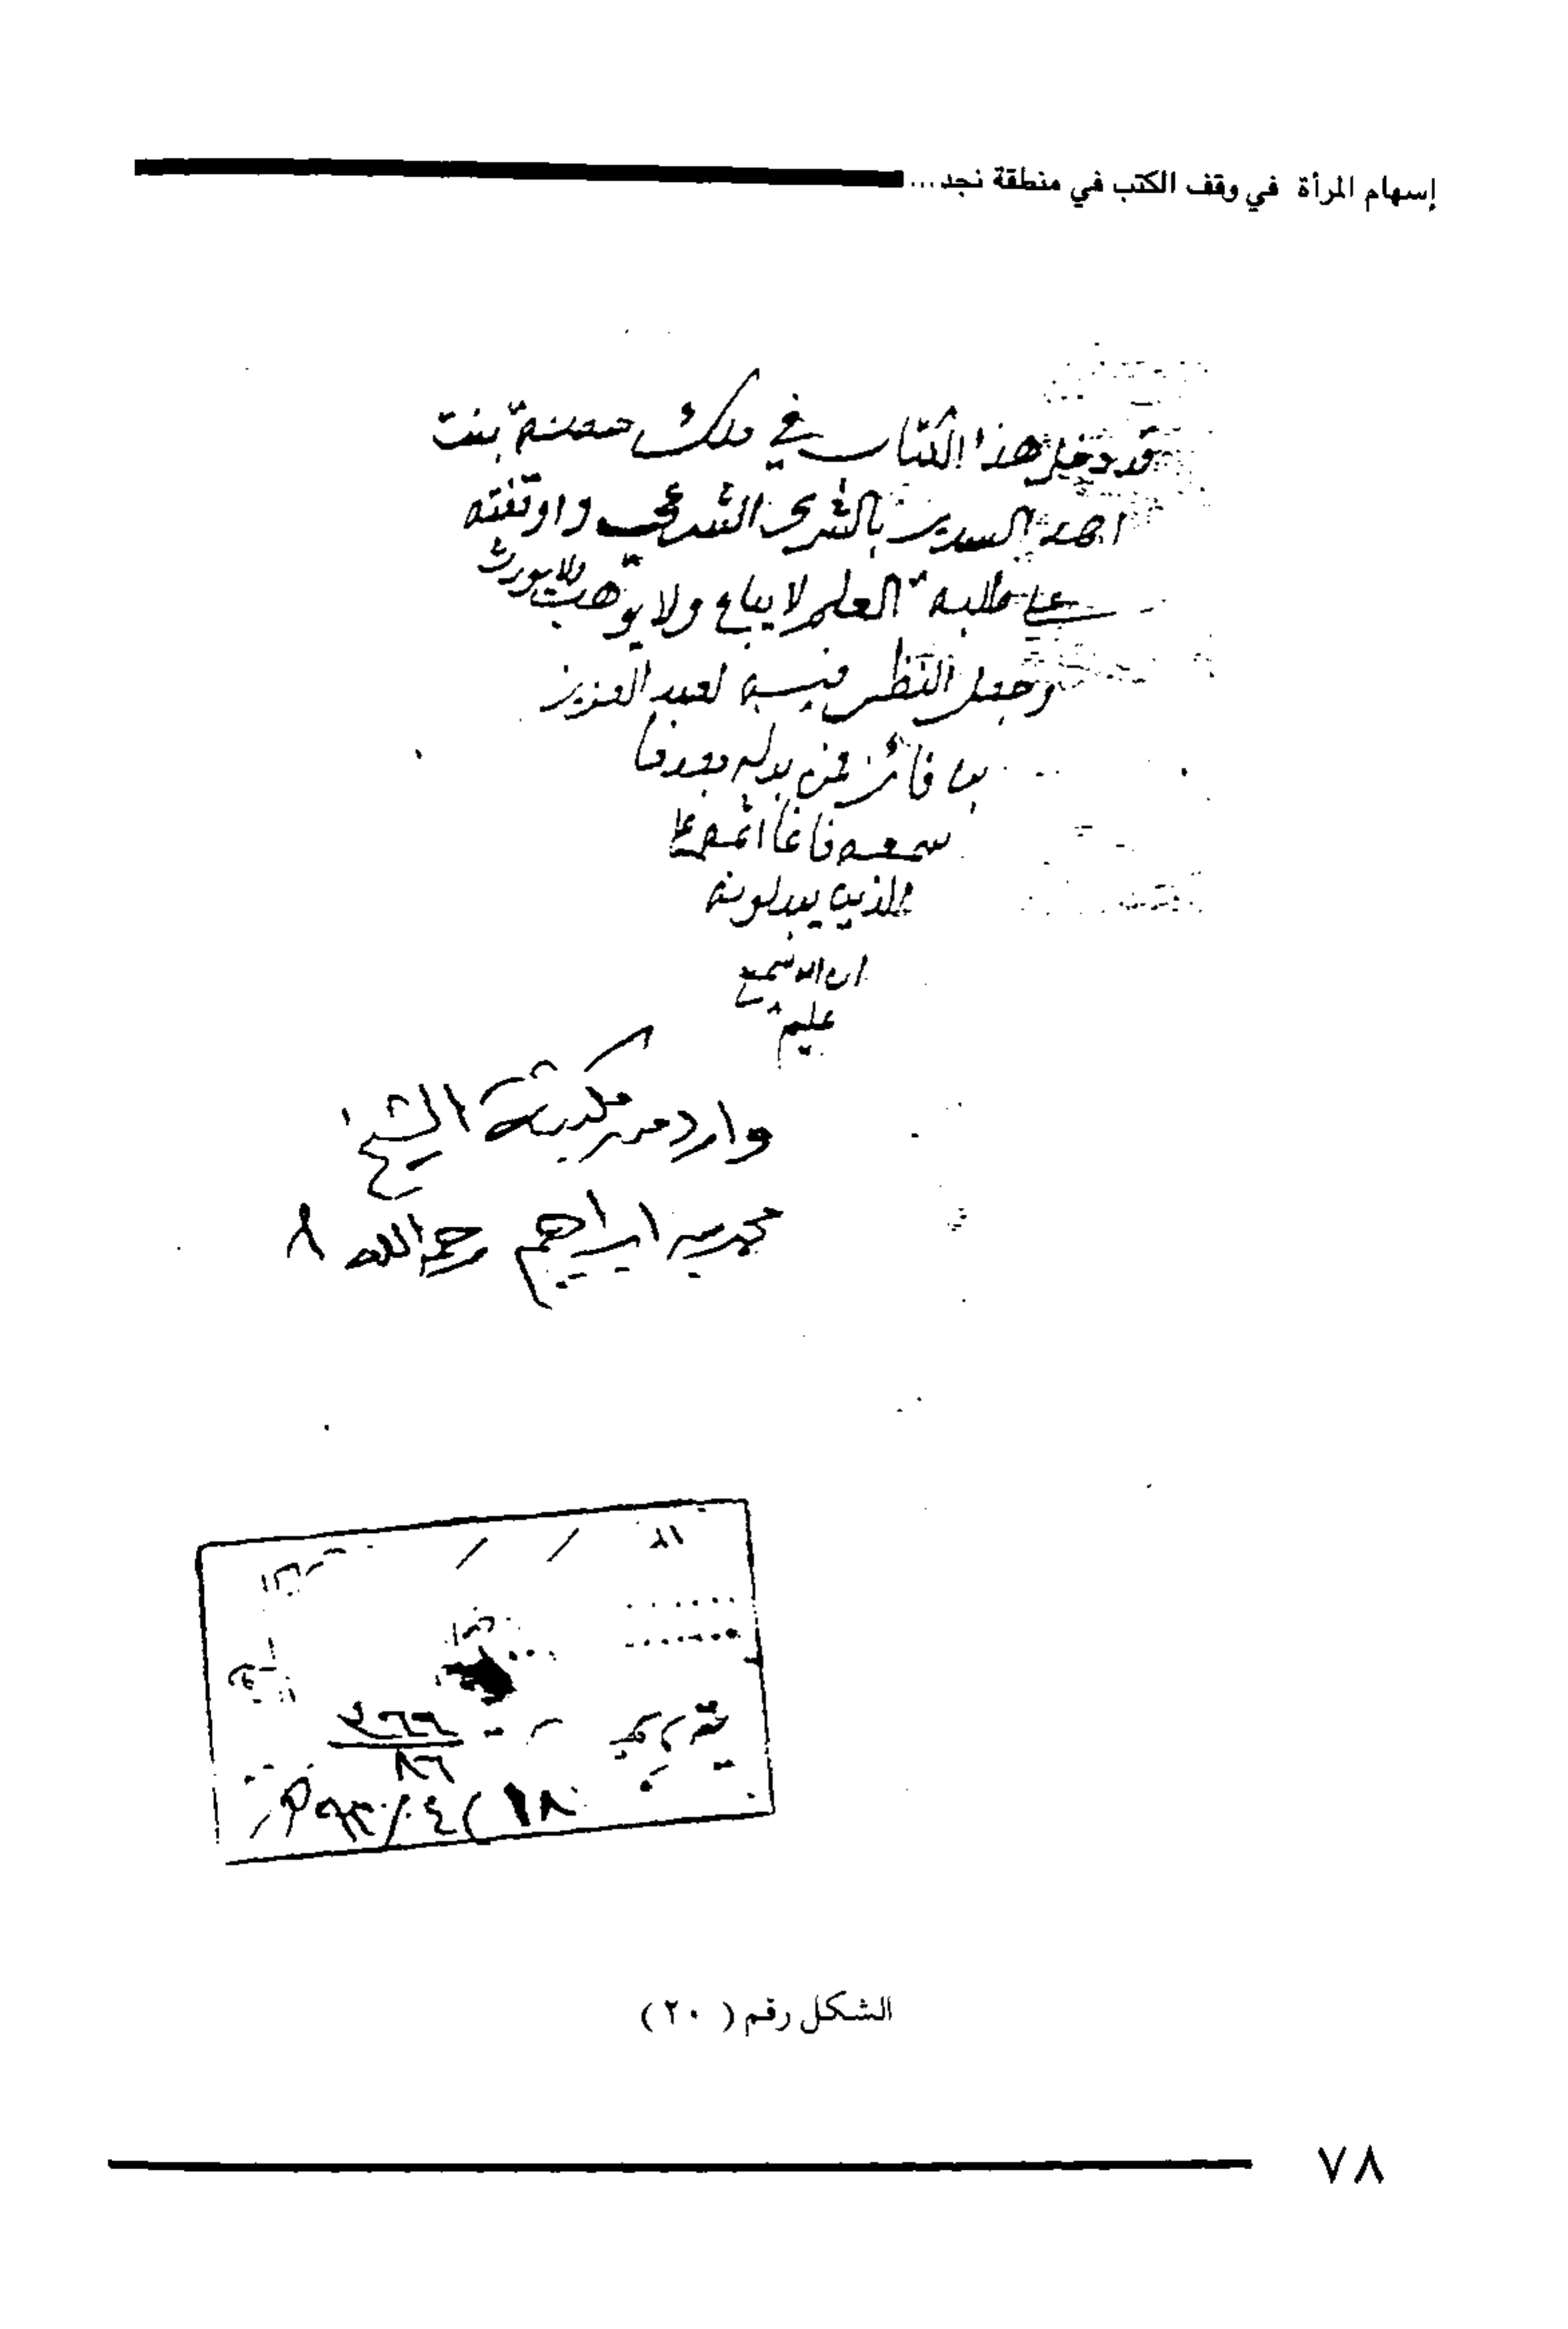 إسهام المرأة في وقف الكتب في منطقة نجد...
قد دخل هذا الكتاب في ملك حصة بنت
احمد السديري بالشرى الشرعي واوقفته
على طلبة العلم لا يباع ولا يوهب ولا يورث
وجعل النظر فيه لعبد العزيز
بن فائز فمن بدله بعد ما
سمعه فانما اثمه على
الذين يبدلونه
ان الله سميع
عليم
وارد من مكتبة الشيخ
محمد بن ابراهيم رحمه الله ٨
٨٦
الشكل رقم ( ٢٠ )
٧٨